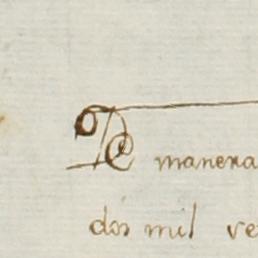 De manera
dos mil ve